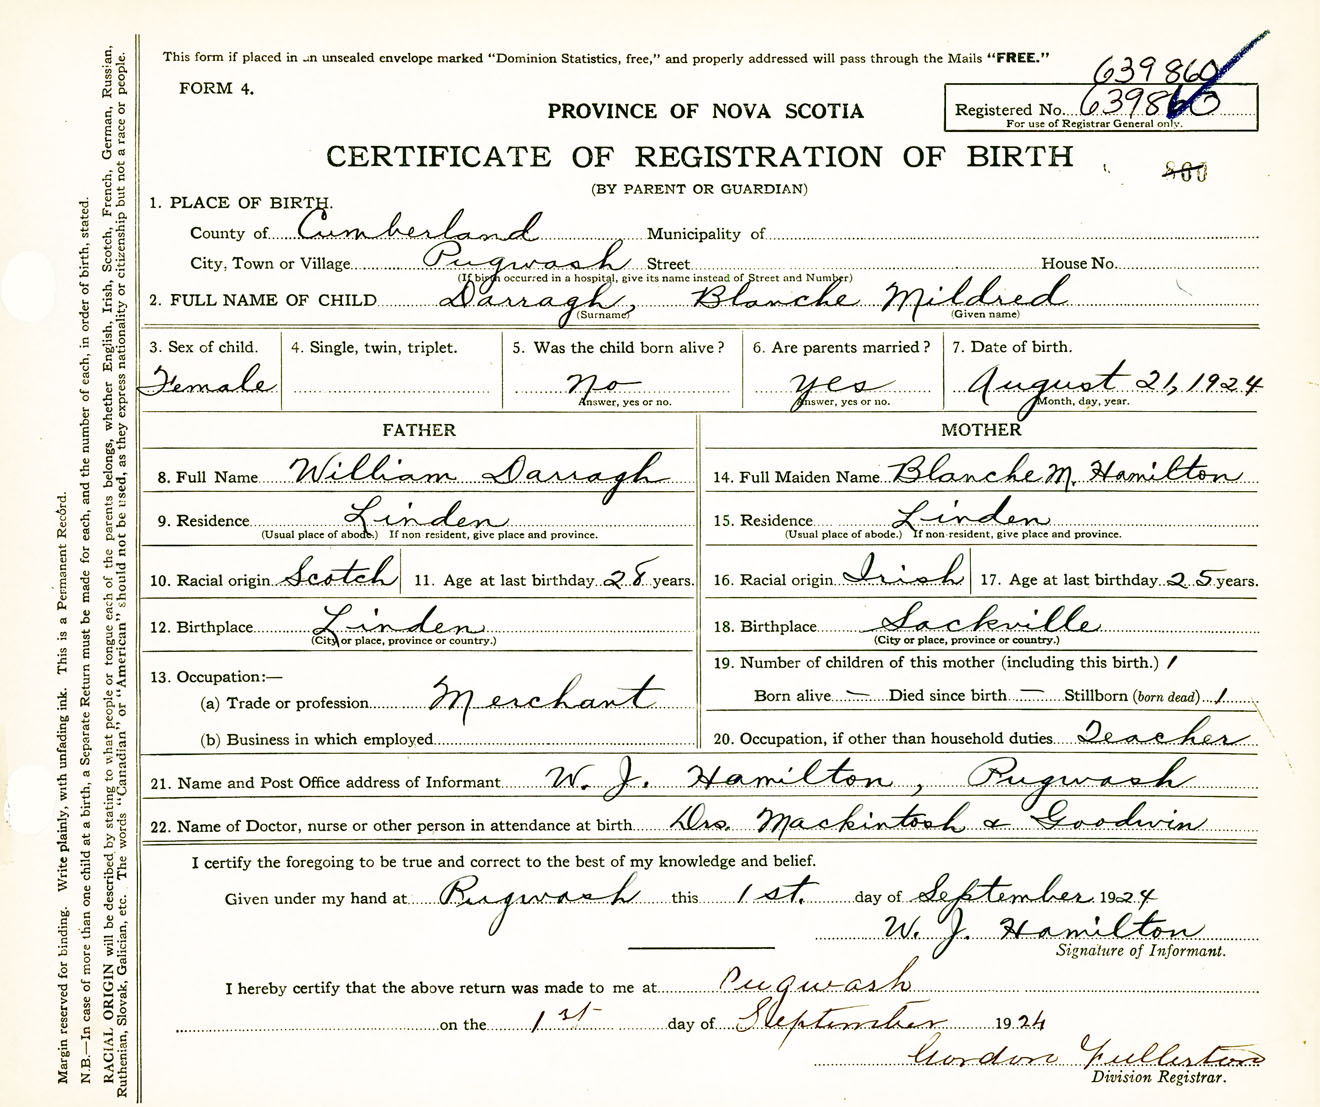 This form if placed in an unsealed envelope marked "Dominion Statistics, free," and properly addressed will pass through the Mails "FREE."
639860
FORM 4.
PROVINCE OF NOVA SCOTIA
Registered No. 639860
For use of Registrar General only.
CERTIFICATE OF REGISTRATION OF BIRTH
800
(BY PARENT OR GUARDIAN)
1. PLACE OF BIRTH.
County of Cumberland Municipality of
City, Town or Village Pugwash Street House No.
(If birth occurred in a hospital, give its name instead of Street and Number)
2. FULL NAME OF CHILD Darragh, Blanche Mildred
(Surname) (Given name)
3. Sex of child. 4. Single, twin, triplet. 5. Was the child born alive? 6. Are parents married? 7. Date of birth.
Female no yes August 21, 1924
Answer, yes or no. Answer, yes or no. Month, day, year.
FATHER MOTHER
8. Full Name William Darragh 14. Full Maiden Name Blanche M. Hamilton
9. Residence Linden 15. Residence Linden
(Usual place of abode.) If non-resident, give place and province. (Usual place of abode.) If non-resident, give place and province.
10. Racial origin Scotch 11. Age at last birthday 28 years. 16. Racial origin Irish 17. Age at last birthday 25 years.
12. Birthplace Linden 18. Birthplace Sackville
(City or place, province or country.) (City or place, province or country.)
13. Occupation:— 19. Number of children of this mother (including this birth.) 1
(a) Trade or profession Merchant Born alive — Died since birth — Stillborn (born dead) 1
(b) Business in which employed 20. Occupation, if other than household duties Teacher
21. Name and Post Office address of Informant W. J. Hamilton, Pugwash
22. Name of Doctor, nurse or other person in attendance at birth Drs. Mackintosh & Goodwin
I certify the foregoing to be true and correct to the best of my knowledge and belief.
Given under my hand at Pugwash this 1st. day of September 1924
W. J. Hamilton
Signature of Informant.
I hereby certify that the above return was made to me at Pugwash
on the 1st day of September 1924
Gordon Fullerton
Division Registrar.
Margin reserved for binding. Write plainly, with unfading ink. This is a Permanent Record.
N.B.—In case of more than one child at a birth, a Separate Return must be made for each, and the number of each, in order of birth, stated.
RACIAL ORIGIN will be described by stating to what people or tongue each of the parents belongs, whether English, Irish, Scotch, French, German, Russian,
Ruthenian, Slovak, Galician, etc. The words "Canadian" or "American" should not be used, as they express nationality or citizenship but not a race or people.